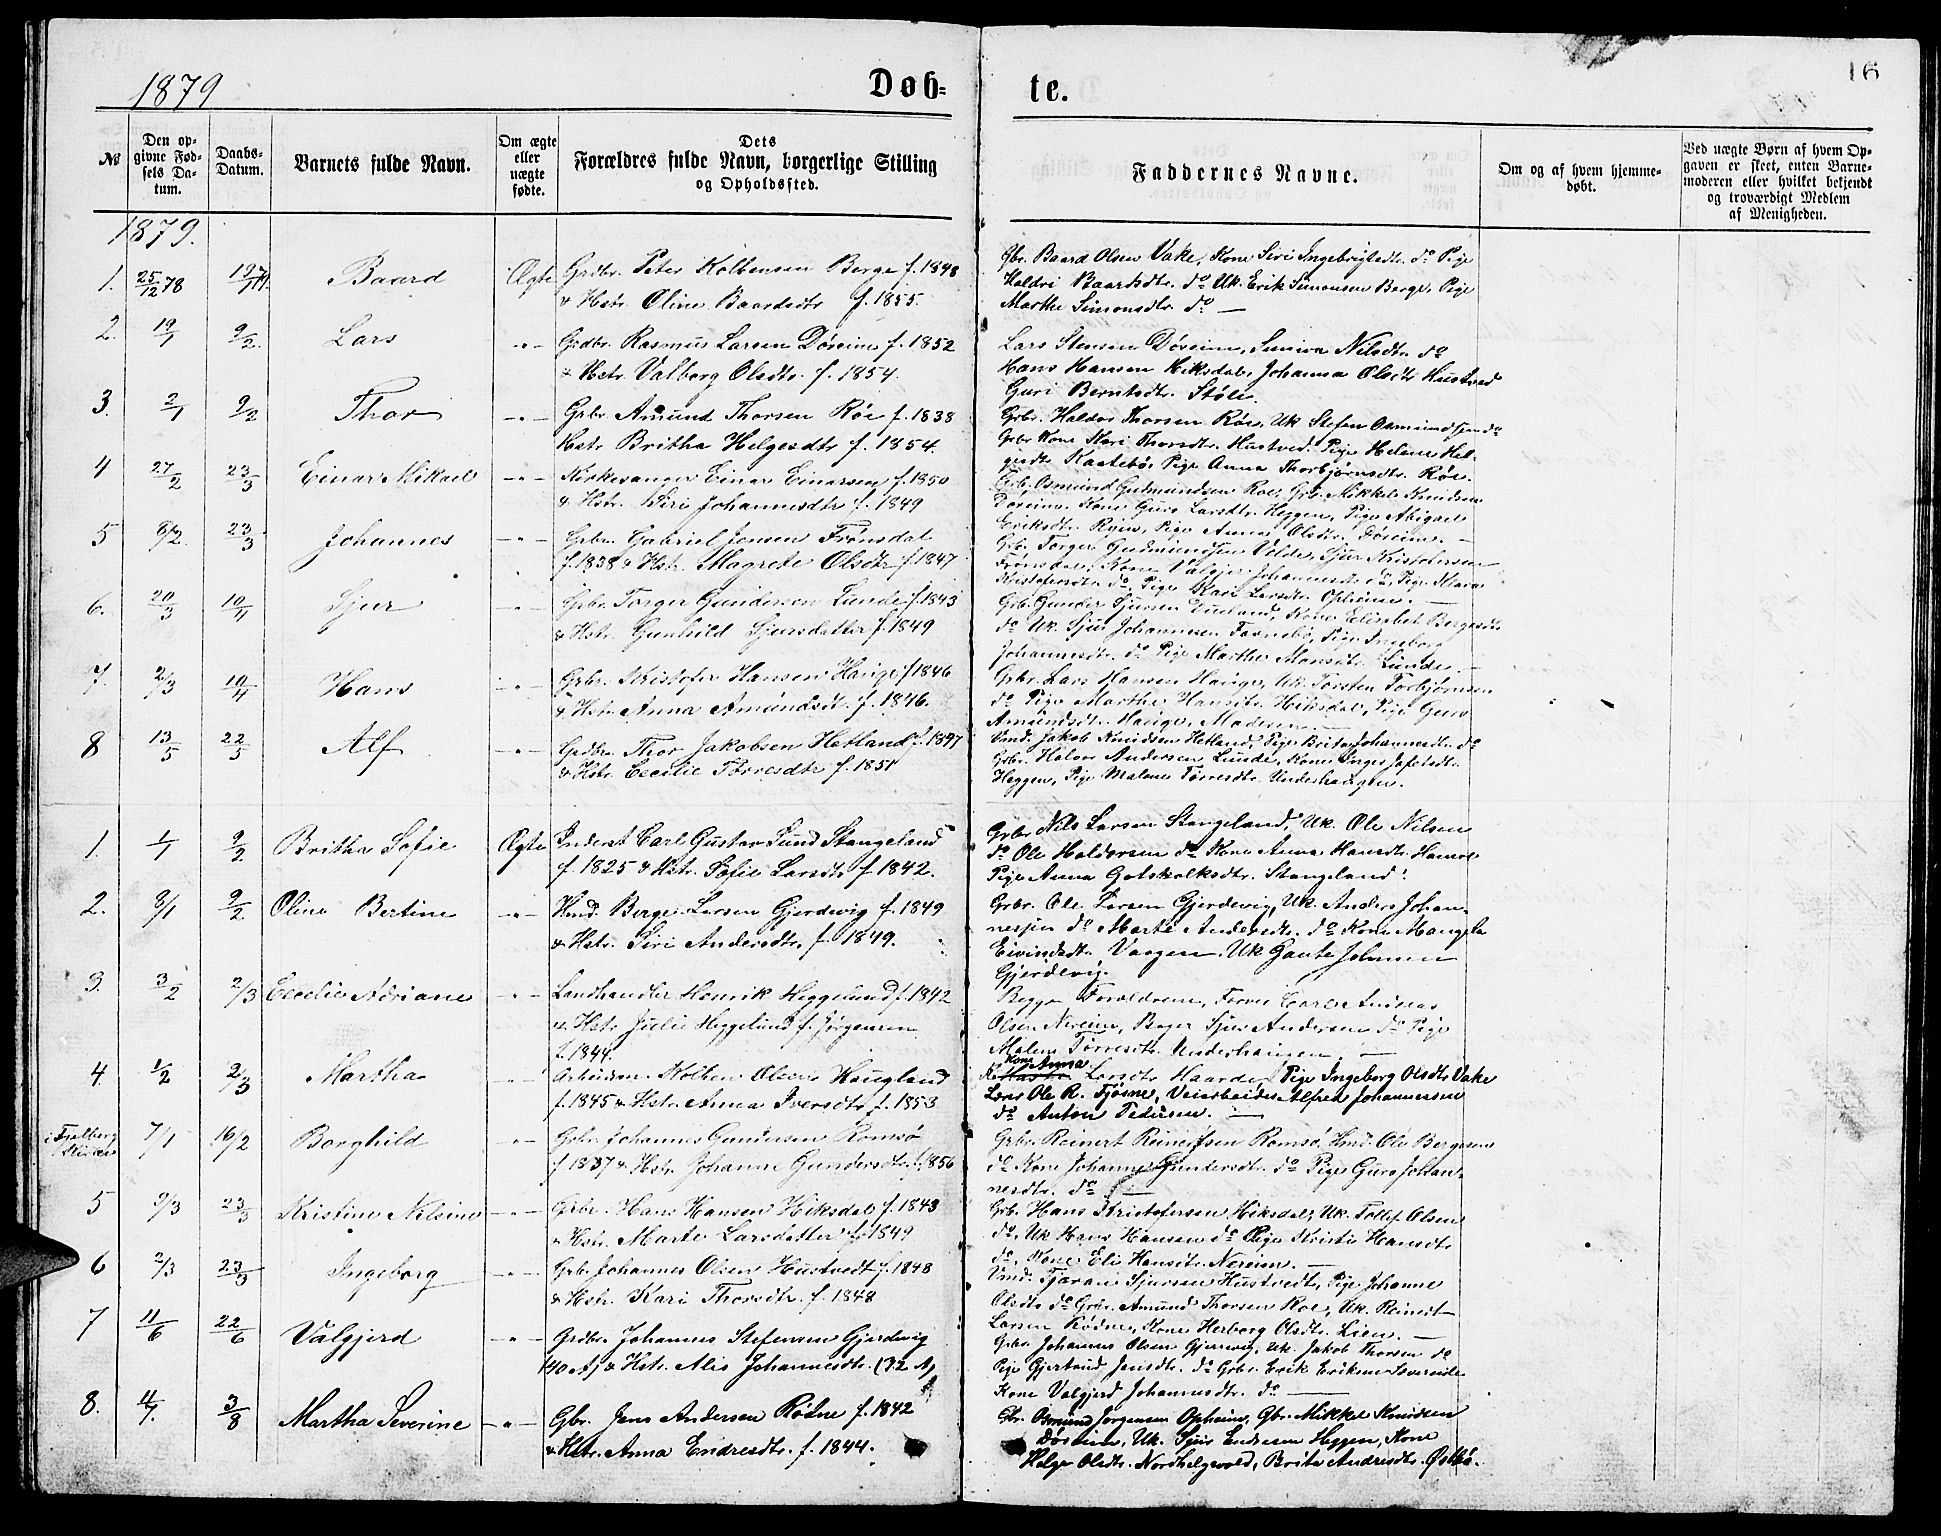 1879
Døb-
te.
16
№
Den opgivne Fødsels Datum.
Daabs-Datum.
Barnets fulde Navn.
Om ægte eller uægte fødte.
Dets Forældres fulde Navn, borgerlige Stilling og Opholdssted.
Faddernes Navne.
Om og af hvem hjemmedøbt.
Ved uægte Børn af hvem Opgaven er skeet, enten Barnemoderen eller hvilket bekjendt og troværdigt Medlem af Menigheden.
1879.
1. 25/12 78 Baard Ægte Grdbr. Peter Kolbensen Berge f. 1848
& Hstr. Oline Baardsdtr f. 1855.
Gbr. Baard Olsen Vake, Kone Siri Ingebrigtsdtr. do Pige
Haldri Baardsdtr. do Uk. Erik Simonsen Berge, Pige
Marthe Simonsdtr. do —
2. 19/1 9/2. Lars -"- Grdbr. Rasmus Larsen Døreim f. 1852
& Hstr. Valborg Olsdtr. f. 1854.
Lars Stensen Døreim, Suniva Nilsdtr. do
Hans Hansen Hiksdal, Johanna Olsdtr Hustved
Guri Berntsdtr. Støle.
3. 2/1 9/2 Thor -"- Grbr. Amund Thorsen Røe f. 1838
Hstr Britha Helgesdtr f. 1854.
Grbr. Haldor Thorsen Røe, Uk Stefen Osmundsen do
Grbr Kone Kari Thorsdtr. Hustved. Pige Helene Helgesdtr Kaatebø, Pige Anna Thorbjørnsdtr. Røe.
4 27/2 23/3 Einar Mikael -"- Kirkesanger Einar Einarsen f. 1850
& Hstr. Siri Johannesdtr f. 1849
Grb. Osmund Gudmundsen Roe, Grb. Mikkel Knudsen
Døreim, Kone Guro Larsdtr. Heggen, Pige Abigael
Eriksdtr. Pige Anna Olsdtr. Døreim. —
5 8/2. 23/3 Johannes -"- Grbr. Gabriel Jensen Frønsdal
f. 1838 & Hstr. Magrete Olsdtr f 1847
Grb. Torger Gudmundsen Valde, Sjur Kristofersen
Frønsdal, Kone Valgjer Johannesdtr do, Pige
Kristofersdtr. do, Pige Kari Larsdtr. Opheim. —
6. 20/3 10/4 Sjur -"- Grbr. Torger Gundersen Lunde f. 1843
& Hstr. Gunhild Sjursdatter f. 1849
Grb. Gunder Sjursen Kone Elisabet Bergesdtr
do Uk. Sjur Johannesen Pige Ingeborg
Johannesdtr. do Pige Marthe Monsdtr. Lunde. —
7. 2/3 10/4 Hans -"- Grbr. Kristofer Hansen Hauge f 1846
& Hstr. Anna Amundsdt. f. 1846.
Grbr. Lars Hansen Hauge, Uk. Torsten Torbjørnsen
do Pige Marthe Hansdtr. Hiksdal, Pige Guro
Amundsdtr. Hauge, Moderen —
8 13/5 22/5 Alf -"- Grdbr. Thor Jakobsen Hetland f. 1847
& Hstr. Cecilie Tørresdtr f. 1851
Vmd. Jakob Knudsen Hetland, Pige Brita Johannesdtr. do
Grbr. Halvor Andersen Lunde, Kone Inger
Heggen, Pige Malene Tørresdtr. Underhaugen.
1. 1/1 9/2 Britha Sofie Ægte Inderst Carl Gustav Lund Stangeland
f. 1825 & Hstr. Sofie Larsdtr f 1842.
Grbr Nils Larsen Stangeland, Uk. Ole Nilsen
do Ole Haldorsen do Kone Anna Hansdtr.
Pige Anna Gotskalksdtr. Stangeland.
2. 8/1 9/2 Oline Bertine -"- Hmd. Berge Larsen Gjerdevig f. 1849
& Hstr. Siri Andersdtr. f. 1849.
Grbr. Ole Larsen Gjerdevig, Uk. Anders Johannessen do Marte Andersdtr. do Kone
Eivindsdtr. Vaagen. Uk Gaute Johannes
Gjerdevig.
3. 3/2 2/3 Cecelie Adriane -"- Landhandler Henrik Heggelund f. 1842
& Hstr. Julie Heggelund f. Jørgensen
f. 1844.
Begge Forældrene, Carl Andreas
Olsen Nereim, Sjur Andersen do Pige
Malene Tørresdtr. Underhaugen. —
4 1/2 2/3 Martha -"- Arbeidsm. Kolben Olsen Haugland
f. 1845 & Hstr. Anna Iversdtr. f. 1853
Kone Anna Larsdtr. Pige Ingeborg Olsdtr. Vake
Ole R. Fjøsne, Veiarbeider Alfred Johannessen
do Anton Pedersen. —
i Fjelberg Kirke 7/1 16/2 Borghild -"- Grbr. Johannes Gundersen Romsø
f. 1837 & Hstr. Johanne Gundersdtr. f. 1856
Grbr. Reinert Reinertsen Romsø, Hmd. Ole Bergesen
do Kone Johanne Gundersdtr. do Pige Guro Johannesdtr. do —
5 9/3 23/3 Kristine Nilsine -"- Grbr. Hans Hansen Hiksdal f. 1843
& Hstr. Marte Larsdatter f. 1849
Grb. Hans Kristofersen Hiksdal, Uk. Tollef Olsen
do, Uk Hans Hansen do Pige Kristie Hansdtr
do, Kone Eli Hansdtr. Nereim. —
6 2/3 23/3 Ingeborg -"- Grb. Johannes Olsen Hustvedt f. 1848
& Hstr. Kari Thorsdtr. f. 1848
Vmd. Tjaran Sjursen Hustvedt, Pige Johanne
Olsdtr do Grbr. Amund Thorsen Roe, Uk. Reinert
Larsen Rødne, Kone Herborg Olsdtr. Lien. —
7 11/6 22/6 Valgjerd -"- Grdbr. Johannes Stefensen Gjerdevig
(40 A) & Hstr. Alis Johannesdtr. (32 A)
Grbr. Johannes Olsen Gjerdevig, Uk. Jakob Thorsen do
Pige Gjertrud Jensdtr. do Grbr. Erik Eriksen
Kone Valgjerd Johannesdtr. do —
8. 4/7. 3/8 Martha Severine -"- Gbr. Jens Andersen Rødne f. 1842
& Hstr. Anna Endresdtr. f. 1844.
Gbr. Osmund Jørgensen Opheim, Gbr. Mikkel Knudsen
Døreim, Uk. Sjur Endresen Heggen, Kone
Helga Olsdtr. Nordhelgevold, Brita Andresdtr. Østbø.